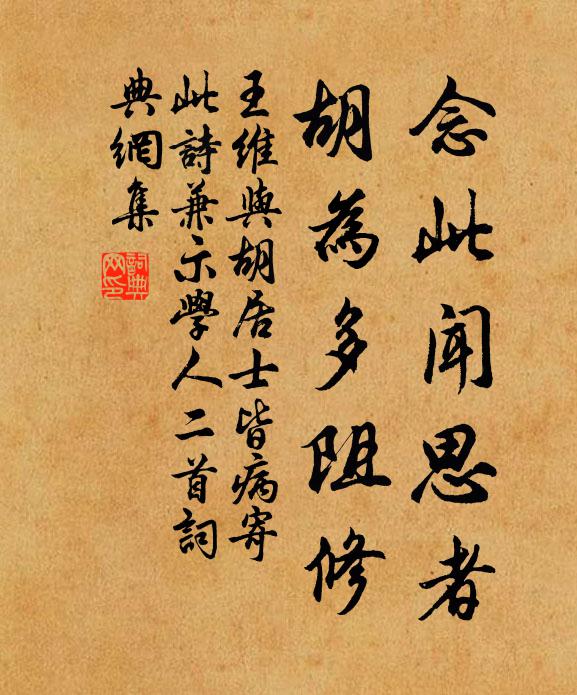 念此闻思者
胡為多阻修
王維與胡居士皆病寄
此詩兼示學人二首詞
典網集
詞典
网印